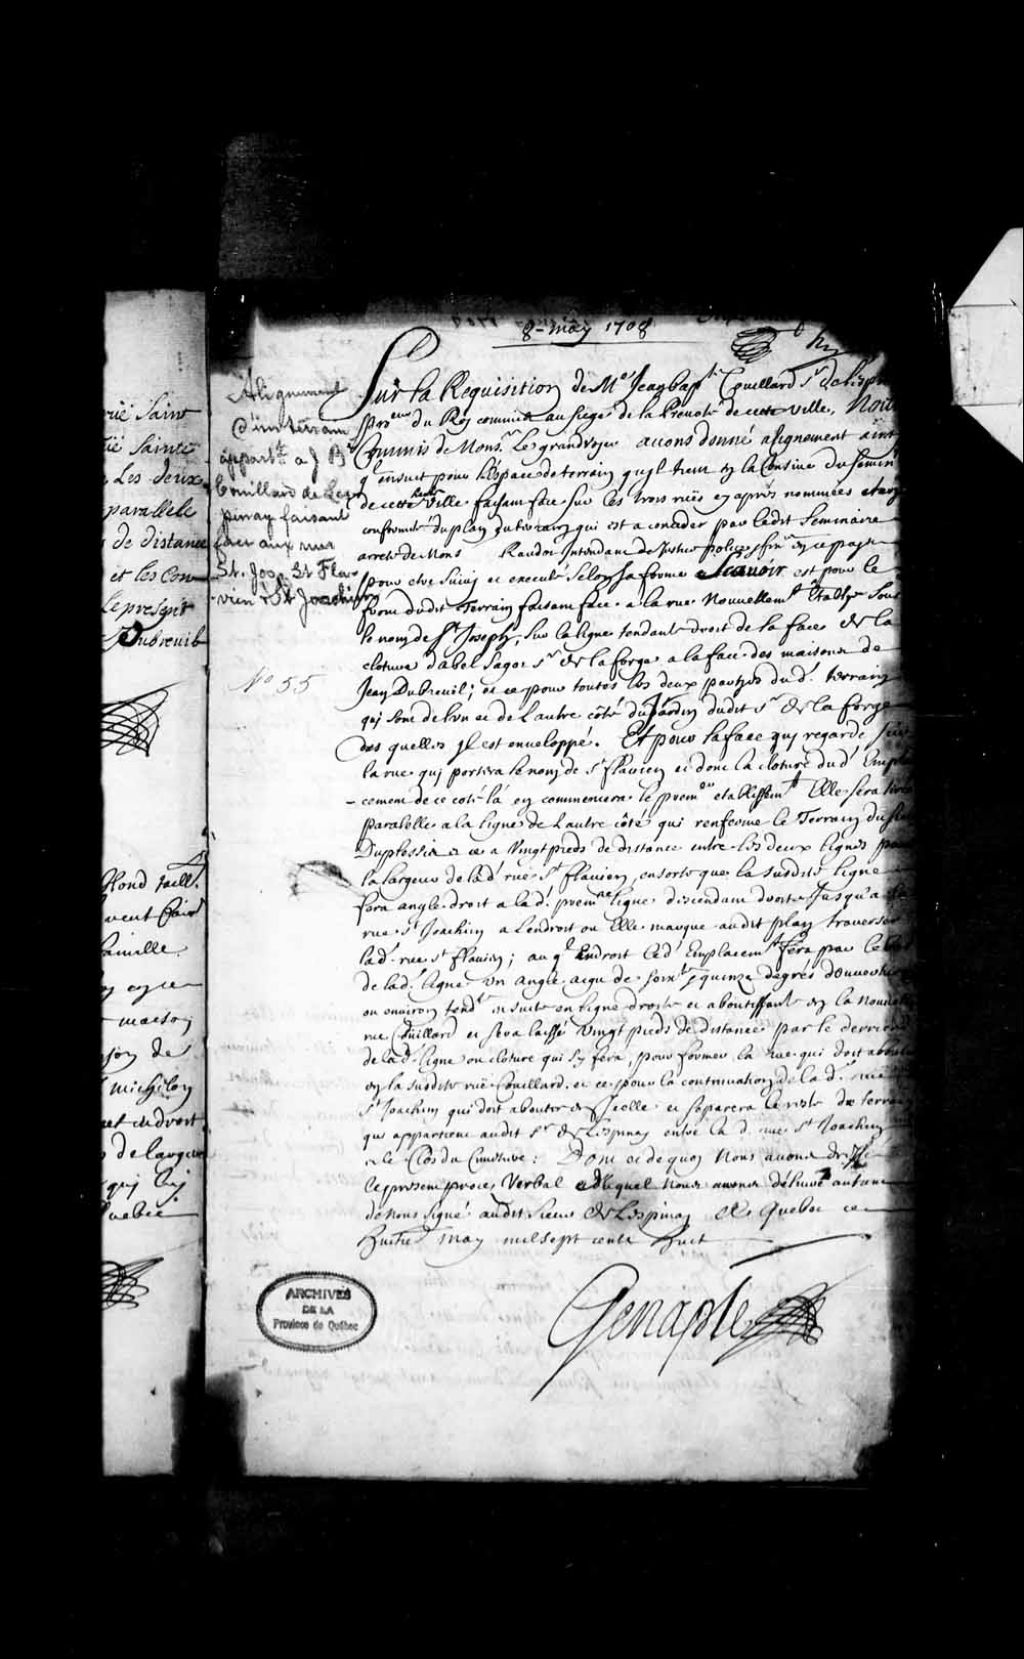 rue Saint
Sainte
Les deux
parallele
de distance
et les Con
le present
Dubreuil
Rond taill.
famille
en ce
maison
son de
michelon
et endroit
de largeur
quebec
8 - may 1708
Alignement
d'un terrain
appart.t a J Bte
Couillard de Les
pinay faisant
face aux rues
St. Jos. St Fla-
vien & St Joachim
No 55
Sur la Requisition de Me Jeanbapt. Couillard Sr de Lespin
Procur du Roy commis au siege de la Prevoté de cette ville, Nous
Commis de Monsr Le grandvoyer avons donné alignement ainsy
q ensuit pour l'espace de terrain quyl tient en la Censive du Semin
de cette haute Ville faisant face sur les trois ruës cy apres nommées et
conformté du plan du terrain qui est a conceder par ledit Seminaire
arresté de Mons Raudot Intendant de Justice police & fin en ce pays
pour etre suivy et executé selon sa forme Scavoir est pour le
front dudit Terrain faisant face a la rue Nouvellemt Etablye sous
le nom de St Joseph, sur la ligne tendante droit de la face de la
cloture d'abel Sagot Sr de la forge a la face des maisons de
Jean Dubreuil; et ce pour toutes les deux partyes du d. terrain
qui sont de lun et de l'autre côté du Jardin dudit Sr de la forge
des quelles Il est enveloppé. Et pour la face quy regarde sur
la rue qui portera le nom de St flavien et dont la cloture dud Empla
- cement de ce coté là en commencera le premer etablissemt Elle sera tirée
paralelle a la ligne de l'autre côté qui renferme le Terrain du Sr
Duplessis et ce a Vingt pieds de distance entre les deux lignes pour
la largeur de lad ruë St flavien, ensorte que la susdite ligne
fera angle droit a lad. premre ligne descendant droite Jusqu'a la
rue St Joachim a l'endroit ou Elle marque audit plan traverser
lad rue St flavien; auql Endroit led Emplacemt fera par le bout
de lad. ligne un angle aigu de soixte & quinze degrés d'ouverture
ou environ tendt en suite en ligne droite et aboutissant en la Nouvelle
rue Coüillard et sera laissé vingt pieds de distance par le derriere
de lad. ligne ou cloture qui s'y fera, pour former la ruë qui doit aboutir
en la susdite ruë Couillard, et ce pour la continuation de la d. ruë
St Joachim qui doit aboutir en Icelle et separera le reste du terrain
qui appartient audit Sr de Lespinay entre la d. rue St Joachim
& le Clos du Cimetiere: Dont et de quoy Nous avons dressé
le present procés Verbal duquel Nous avons délivré autant
de nous signé audit Sieur de Lespinay A Quebec ce
huitie may mil sept cents huit
Genaple
ARCHIVES
DE LA
Province de Québec